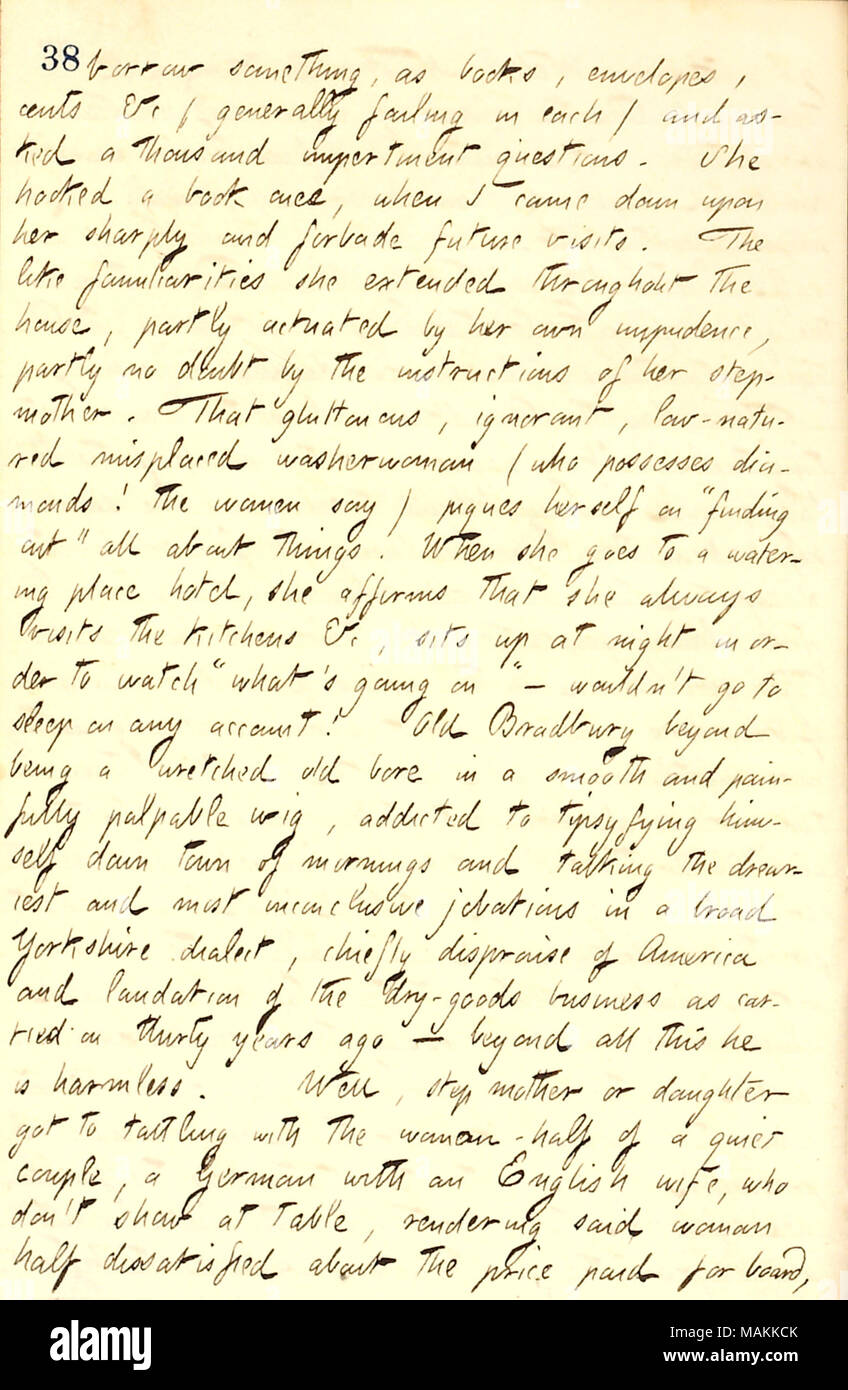 38 borrow something, as books, envelopes,
cents &c ( generally failing in each ) and as-
ked a thousand impertinent questions. She
hooked a book once, when I came down upon
her sharply and forbade future visits. The
like familiarities she extended throughout the
house, partly actuated by her own impudence,
partly no doubt by the instructions of her step-
mother. That gluttonous, ignorant, low-natu-
red misplaced washerwoman ( who possesses dia-
monds! the women say ) piques herself on "finding
out" all about things. When she goes to a water-
ing place hotel, she affirms that she always
visits the kitchens &c, sits up at night in or-
der to watch "what's going on" — wouldn't go to
sleep on any account! Old Bradbury beyond
being a wretched old bore in a smooth and pain-
fully palpable wig, addicted to tipsyfying him-
self down town of mornings and talking the drear-
iest and most inconclusive jobations in a broad
Yorkshire dialect, chiefly dispraise of America
and laudation of the dry-goods business as car-
ried on thirty years ago — beyond all this he
is harmless. Well, step mother or daughter
got to tattling with the woman-half of a quiet
couple, a German with an English wife, who
don't show at table, rendering said woman
half dissatisfied about the price paid for board,
alamy
Image ID: MAKKCK
www.alamy.com